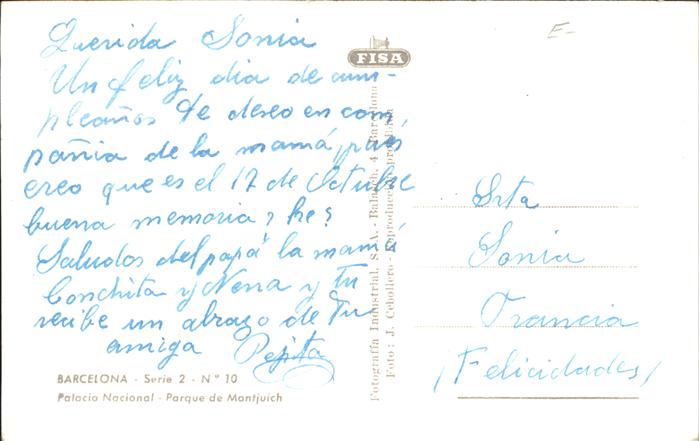 Querida Sonia
Un feliz dia de cum-
pleaños te deseo en com
pañia de la mamá, pues
creo que es el 17 de Octubre
buena memoria ? he ?
Saludos del papá la mamá
Conchita y Nena y tu
recibe un abrazo de Tu
amiga Pepita
BARCELONA - Serie 2 - N° 10
Palacio Nacional - Parque de Montjuich
FISA
Fotografía Industrial, S.A. - Balmes, 4 - Barcelona
Foto: J. Cebollero - Reproducción prohibida
E-
Srta
Sonia
(Felicidades)